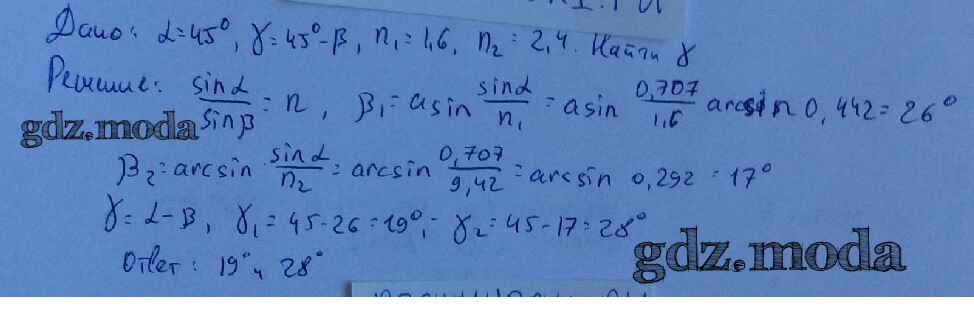 Дано: α=45°, γ=45°-β, n₁=1,6, n₂=2,4. Найти γ
Решение: sinα/sinβ = n, β₁=asin sinα/n₁ = asin 0,707/1,6 arcsin 0,442=26°
gdz.moda
β₂=arcsin sinα/n₂ = arcsin 0,707/9,42 = arcsin 0,292=17°
γ=α-β, γ₁=45-26=19°; γ₂=45-17=28°
Ответ: 19° и 28°
gdz.moda